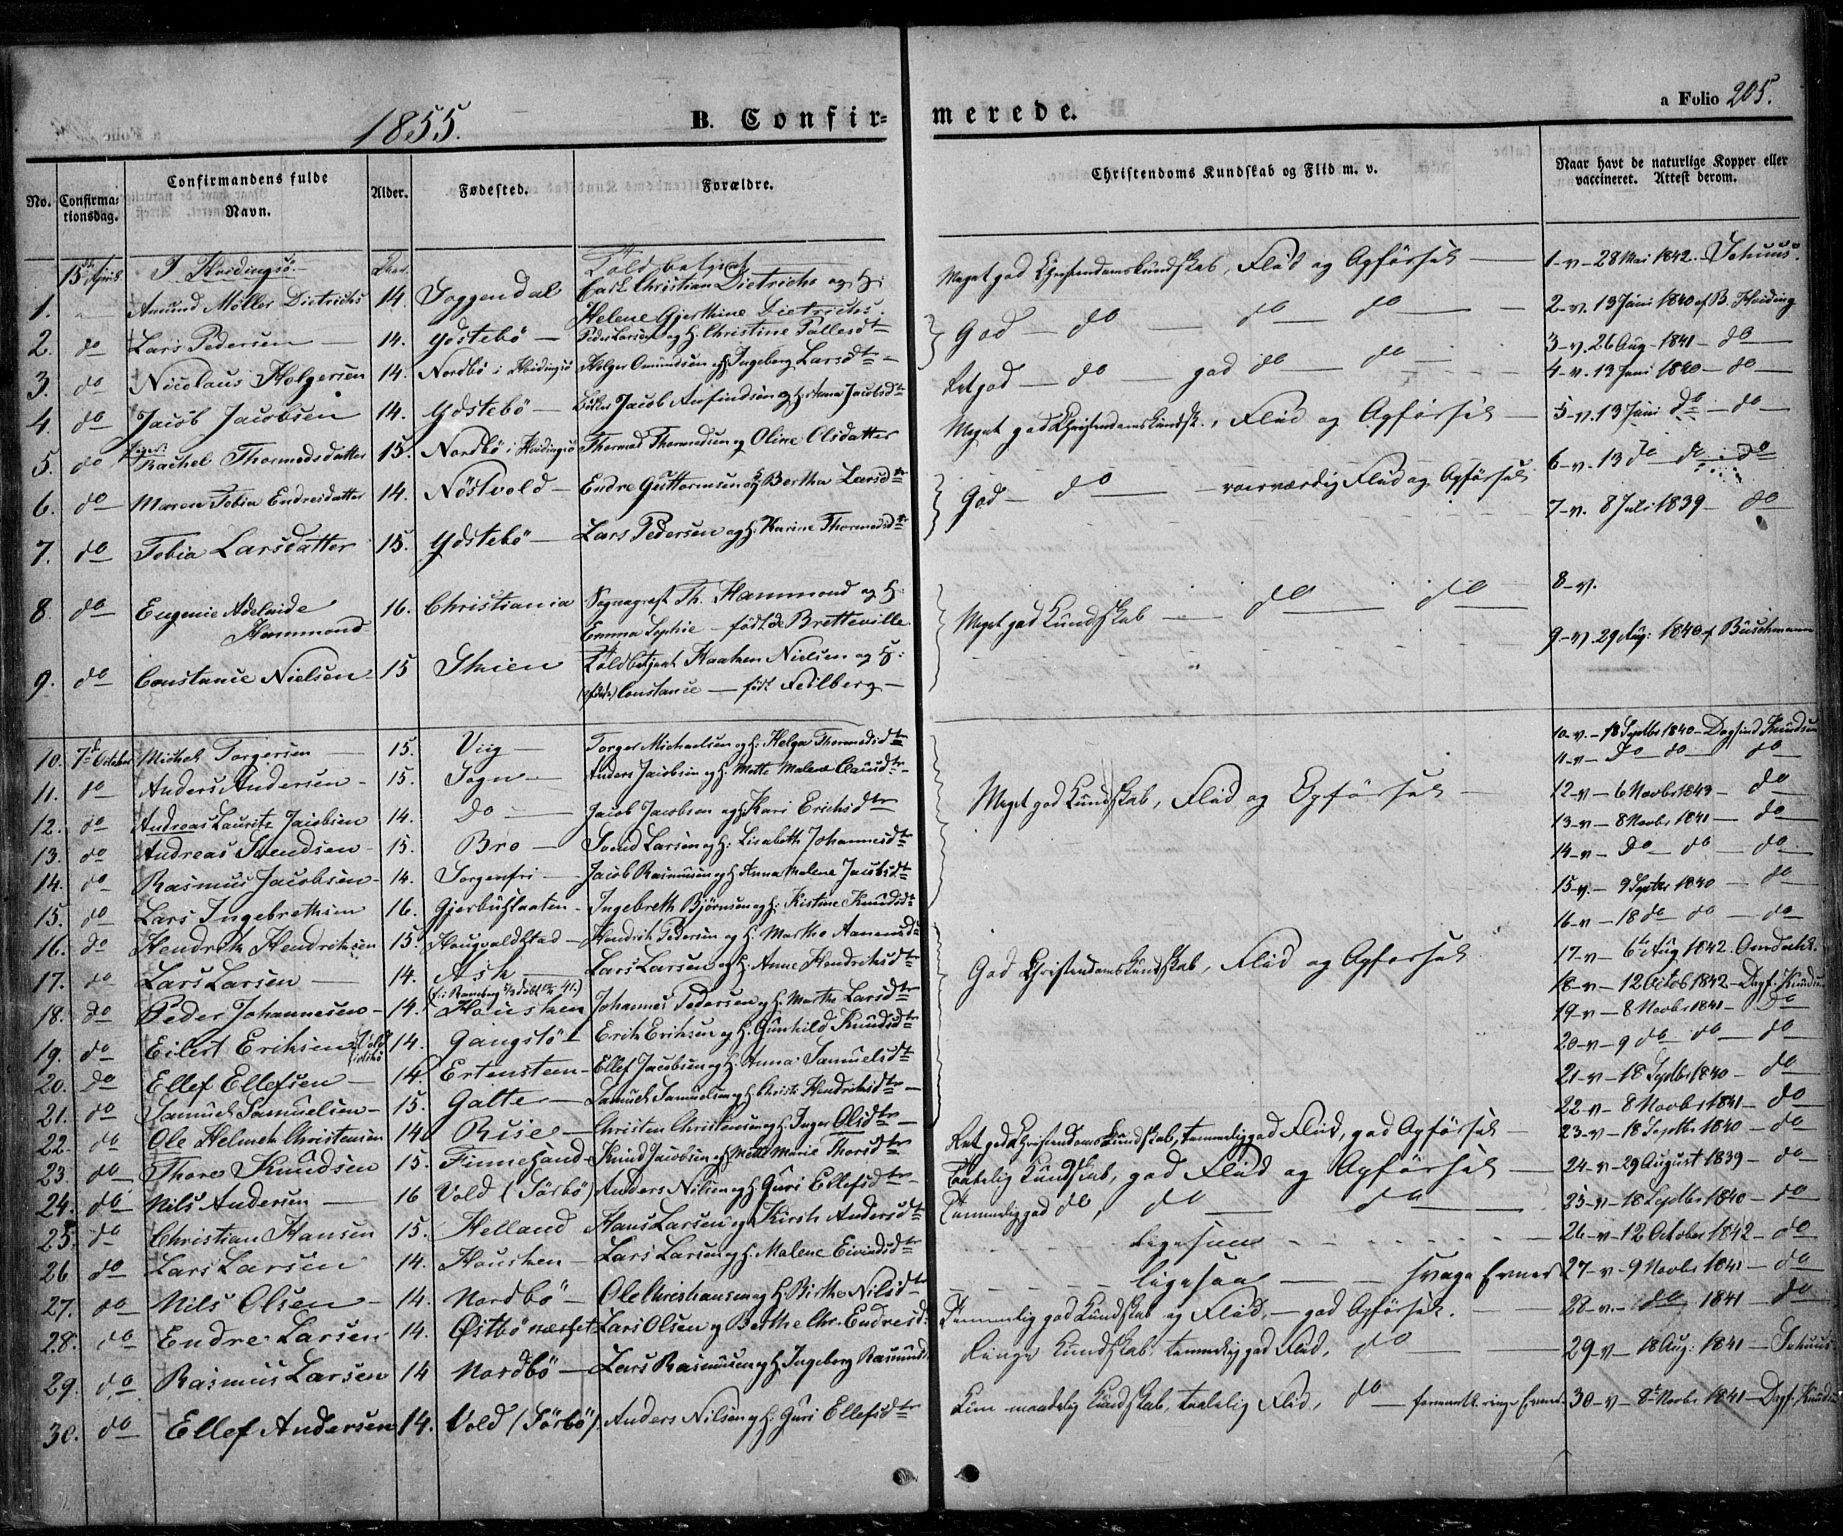 1855.
B. Confirmerede.
a Folio 205.
No.
Confirmationsdag.
Confirmandens fulde Navn.
Alder.
Fødested.
Forældre.
Christendoms Kundskab og Flid m. v.
Naar havt de naturlige Kopper eller vaccineret. Attest derom.
15de April I Hvidingsø
1. Amund Møller Dietrichs 14. Soggendal Toldbetjent Carl Christian Dietrichs og H: Helene Gjerthine Dietrichs. Meget god Christendomskundskab, Flid og Opførsel 1-v-28 Mai 1842-
2. do Lars Pedersen 14. Ydstebø Peder Larsen og H. Christine Pallesdtr God do do do 2-v. 13 Juni 1840 af B. Hviding
3. do Nicolaus Holgersen 14. Nordbø i Hvidingsø Holger Omundsen og H Ingeberg Larsdtr 3-v. 26 Aug. 1841 do
4. do Jacob Jacobsen 14. Ydstebø Jacob Anfindsen og H: Anna Jacobsdtr Ret god do god do do 4-v. 13 Juni 1840 do
5. do Rachel Thormodsdatter 15. Nordbø i Hvidingsø Thormod Thormodsen og Oline Olsdatter Meget god Christendomskundsk., Flid og Opførsel 5-v. 13 Juni do do
6. do Maren Tobia Endresdatter 14. Nøstvold Endre Guttormsen og Bertha Larsdtr God do roesværdig Flid og Opførsel 6-v. 13 do do do
7. do Tobia Larsdatter 15. Ydstebø Lars Pedersen og H. Karine Thormodsdtr 7-v. 8 Juli 1839 do
8. do Eugenie Adelaide Hammond 16. Christiania Sognepræst Th. Hammond og H: Emma Sophie født de Bretteville Meget god Kundskab do do 8-v.
9. do Constance Nielsen 15 Skien Toldbetjent Haaken Nielsen og H: Constance født Feilberg 9-v. 29 Aug: 1840 af Buschmann
10. 7de October Michel Torgersen 15. Viig Torger Michaelsen og H: Helga Thormodsdtr 10-v.-18 Septbr 1840-Dagfind Knudsen
11. do Anders Andersen 15. Sogn Anders Jacobsen og H: Mette Malene 11-v- do do do
12. do Andreas Lauritz Jacobsen 14. do Jacob Jacobsen og H Kari Erichsdtr Meget god Kundskab, Flid og Opførsel 12-v-6 Novbr 1843- do
13. do Andreas Svendsen 15. Bro Svend Larsen og H: Lisabeth Johannesdtr 13-v-8 Novbr 1841- do
14. do Rasmus Jacobsen 14. Sorgenfri Jacob Rasmusen og H: Anna Malene Jacobsdtr 14-v- do do do
15. do Lars Ingebrethsen 16. Ingebreth Bjørnsen og H: Kirstine Knudsdtr 15-v.- 9 Septbr 1840 do
16. do Hendrik Hendriksen 15. Haugvaldstad Hendrik Pedersen og H. Martha 16-v-18 do do do
17. do Lars Larsen 14. Ask Lars Larsen og H: Anne Hendriksdtr God Christendomskundskab, Flid og Opførsel 17-v- 6te Aug 1842.
18. do Peder Johannesen 14. Hausken Johannes Pedersen og H: Marthe Larsdtr 18-v-12 Octob 1842-Dagf. Knudsen
19. do Eilert Eriksen 14. Gangstø Erik Eriksen og H: Gunhild Knudsdtr 19-v-8 Novbr 1841- do
20. do Ellef Ellefsen 14. Ertensteen Ellef Jacobsen og H: Anna Samuelsdtr 20-v-9 do do do
21. do Samuel Samuelsen 15. Galte Samuel Samuelsen og H: Christi Hendriksdtr 21-v-18 Septbr 1840- do
22. do Ole Helmek Christensen 14. Riise Christen Christensen og H: Inger Olsdtr Ret god Christendomskundskab, temmelig god Flid, god Opførsel 22-v-8 Novbr 1841- do
23. do Thore Knudsen 15. Finnesand Knud Jacobsen og H Mette Marie Thorsdtr Taalelig Kundskab, god Flid og Opførsel 23-v-18 Septbr 1840- do
24. do Nils Andersen 16 Vold (Sørbø) Anders Nilsen og H: Guri Ellefsdtr Temmelig god do, do do 24-v-29 August 1839- do
25. do Christian Hansen 15. Helland Hans Larsen og H Kirsti Andersdtr ligesaa 25-v-18 Septbr 1840- do
26 do Lars Larsen 14. Hausken Lars Larsen og H: Malene Eivindsdtr ligesaa svage Evner 26-v-12 October 1842- do
27. do Nils Olsen 14. Nordbø Ole Christiansen og H. Birthe Nilsdtr Temmelig god Kundskab og Flid, god Opførsel. 27-v-9 Novbr 1841- do
28. do Endre Larsen 14. Østbønæsset Lars Olsen og Berthe Chr. Endresd: Ringe Kundskab, temmelig god Flid, do 28-v.- do 1841- do
29. do Rasmus Larsen 14 Nordbø Lars Rasmusen og H: Ingeborg Rasmusd. 29-v-18 Aug: 1841-
30. do Ellef Andersen 14. Vold (Sørbø). Anders Nilsen og H: Guri Ellefsdtr Kun maadelig Kundskab, taalelig Flid, do ringe Evner 30-v-8de Novbr 1841-Dagf. Knudsen